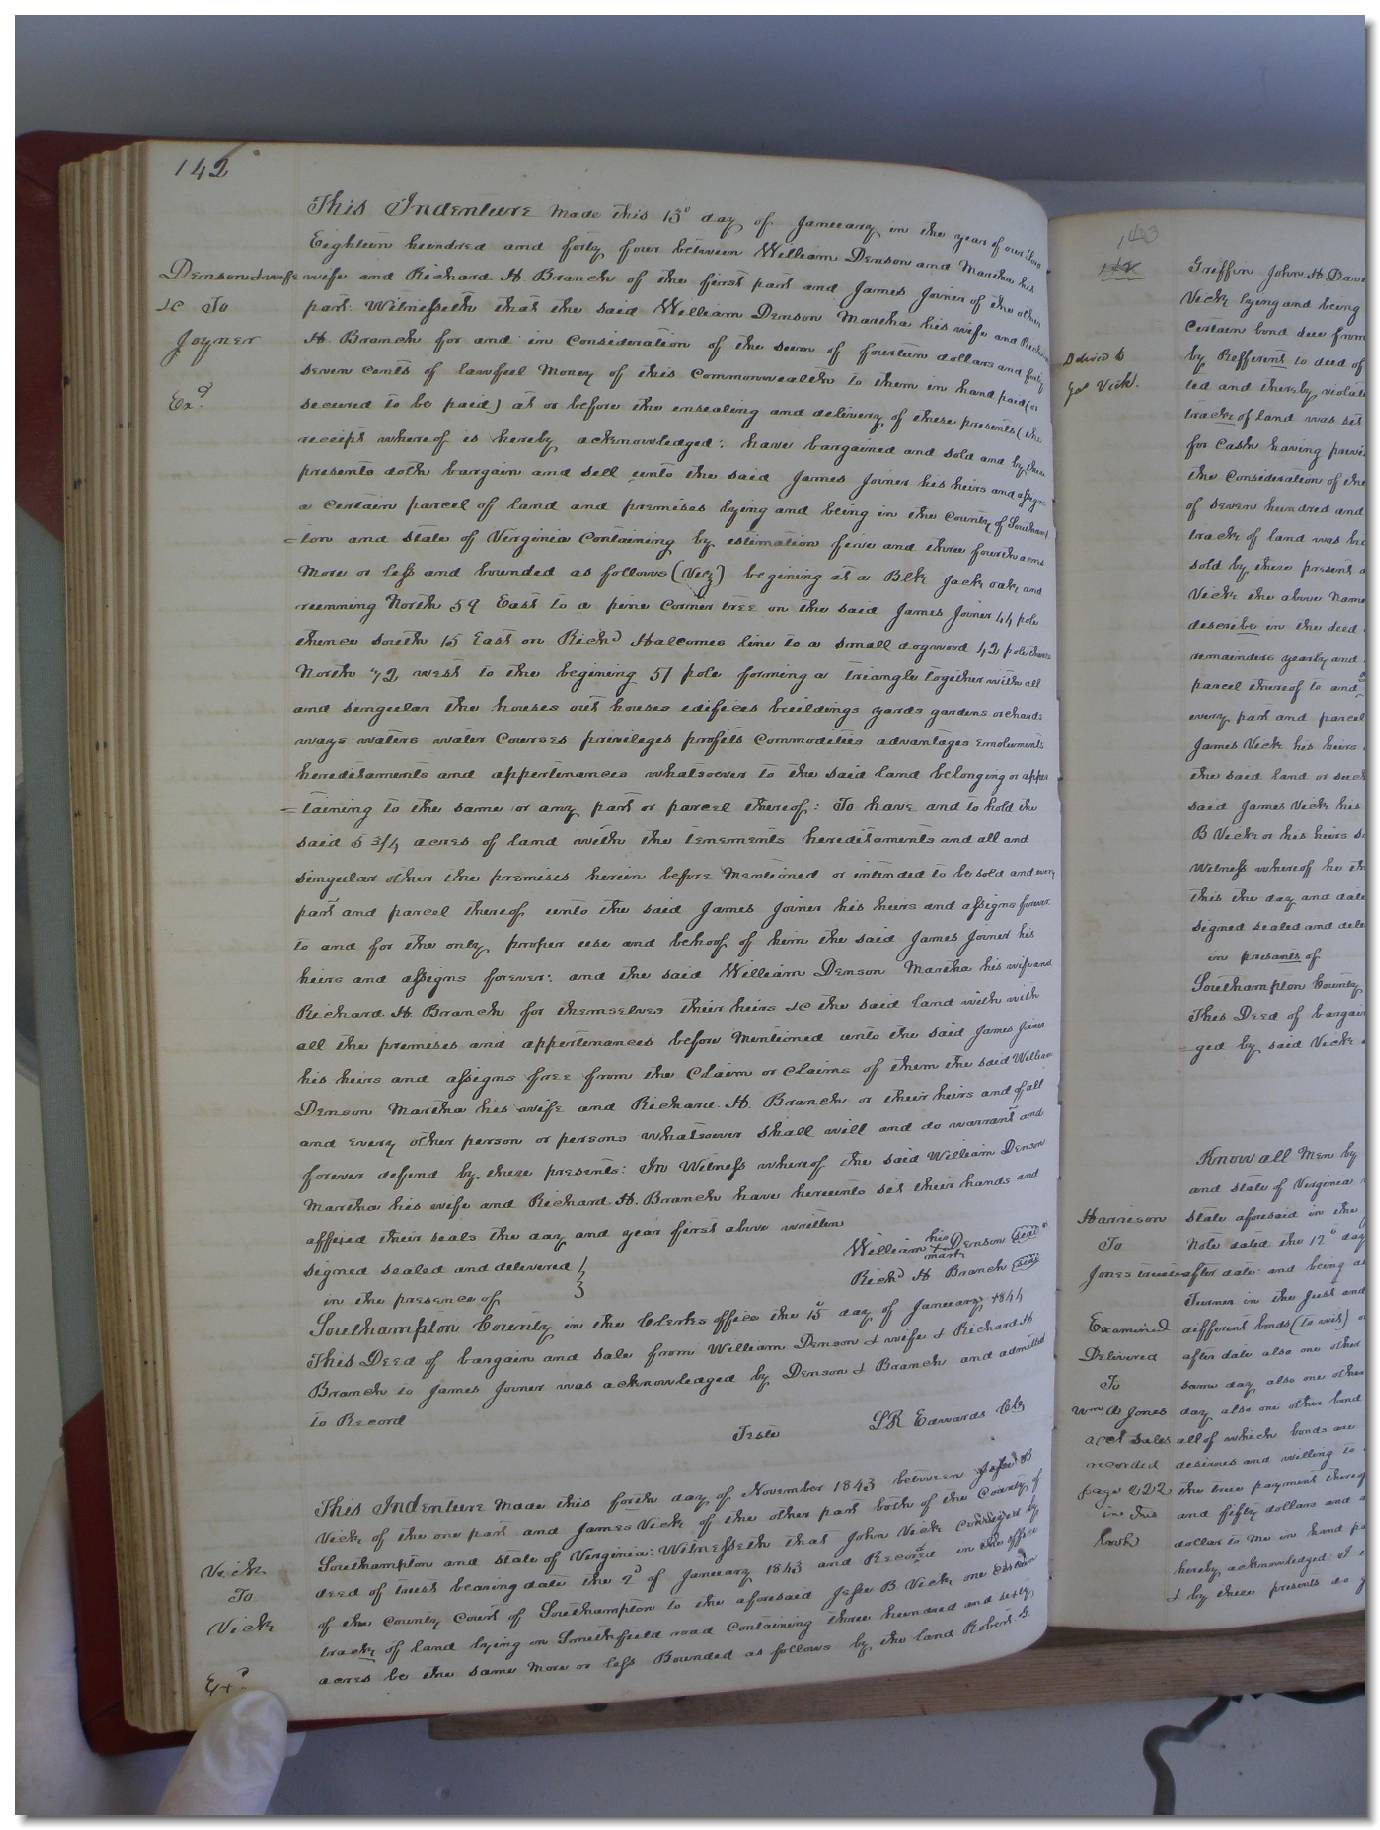 142
This Indenture made this 15° day of Janueary in the year of our Lord
Eighteen heundred and forty four between William Denson and Martha his
Denson & wife wife and Richard H Branch of the first part and James Joiner of the other
&c To part: Witnesseth that the said William Denson Martha his wife and Richard
Joyner H. Branch for and in consideration of the seum of fourteen dollars and forty
seven cents of lawfeul Money of this Commonwealth to them in hand paid (or
Exd. secured to be paid) at or before the ensealing and delivery of these presents (the
receipt whereof is hereby acknowledged: have bargained and sold and by these
presents doth bargain and sell unto the said James Joiner his heirs and assigns
a certain parcel of land and premises lying and being in the County of Southamp
=ton and state of Virginia Containing by estimation five and three fourth acres
More or less and bounded as follows (Viz) begining at a Blk Jack oak, and
reunning North 59 East to a pine corner tree on the said James Joiner 44 pole
thence south 15 East on Richd Halcomes line to a small dogwood 42 pole thence
North 72 west to the begining 51 pole forming a triangle together with all
and singeular the houses out houses edifices beuildings yards gardens orchards
ways waters water Courses privileges profits Commodities advantages Emoluments
hereditaments and appertenances whatsoever to the said land belonging or apper
=taining to the same or any part or parcel thereof: To have and to hold the
said 5 3/4 acres of land with the tenements hereditaments and all and
singeular other the premises herein before Mentioned or intended to be sold and every
part and parcel thereof unto the said James Joiner his heirs and assigns forever
to and for the only proper use and behoof of him the said James Joiner his
heirs and assigns forever: and the said William Denson Martha his wife and
Richard H. Branch for themselves their heirs &c the said land with with
all the premises and appertenances before Mentioned unto the said James Joiner
his heirs and assigns free from the Claim or Claims of them the said William
Denson Martha his wife and Richard. H. Branch or their heirs and of all
and every other person or persons whatsoever shall will and do warrant and
forever defend by these presents: In Witness whereof the said William Denson
Martha his wife and Richard. H. Branch have hereunto set their hands and
affixed their seals the day and year first above written
signed sealed and delivered William his + mark Denson seal
in the presence of Richd H Branch seal
Southampton County in the Clerks office the 15 day of Janueary 1844
This Deed of bargain and sale from William Denson & wife & Richard H
Branch to James Joiner was acknowledged by Denson & Branch and admitted
to Record
Teste LR Edwards Clk
This Indenture Made this forth day of November 1843 between Jesse B
Vick of the one part and James Vick of the other part both of the County of
Vick Southampton and state of Virginia: Witnesseth that John Vick Conveyed by
To deed of trust bearing date the 2d of January 1843 and Recored in the office
Vick of the County Court of Southampton to the aforesaid Jesse B Vick, one certain
track of land lying on Smithfield road containing three heundred and sixty
Exd acres be the same More or less Bounded as follows by the land Robert G.
143
Griffin John H Dave
Vick lying and being
certain bond due from
Edwin B by Refferent to deed of
Vick. ted and thereby violate
track of land was set
for Cash having previ
the Consideration of the
of seven heundred and
track of land was
sold by these present a
Vick the above name
describe in the deed
remainders yearly and
parcel thereof to and
every part and parcel
James Vick his heirs
the said land or such
said James Vick his
B Vick or his heirs
Witness whereof he
this the day and date
signed sealed and deli
in presants of
Southampton County
This Deed of bargai
ged by said Vick
Know all Men by
and state of Virginia
Harrison State aforesaid in the
To Note dated the 12° day
Jones trustee after date and being
Turner in the just and
Examined different bonds (to wit)
Delivered after date also one other
To same day also one other
Wm A Jones day also one other bond
act sales all of which bonds are
recorded desirous and willing to
page 222 the true payment thereof
in this and fifty dollars and
book dollar to me in hand pa
hereby acknowledged I
& by these presents do